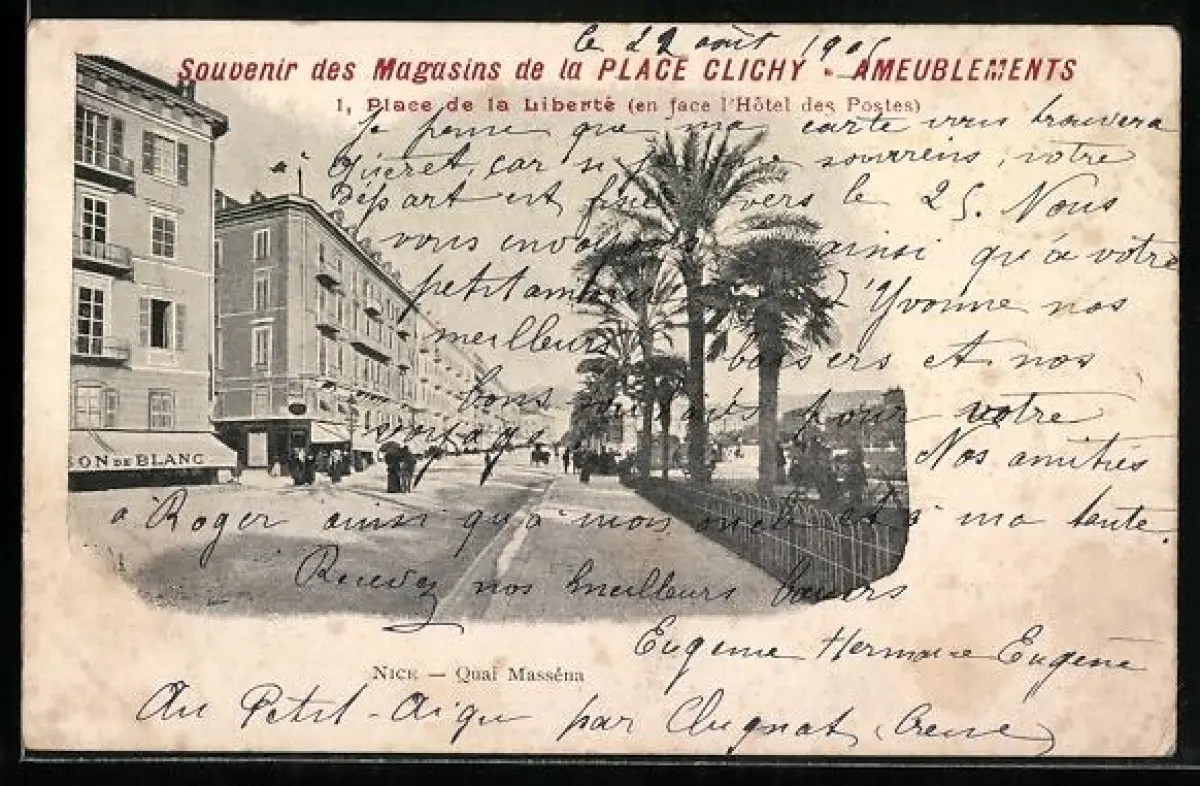 le 22 août 1905
Souvenir des Magasins de la PLACE CLICHY - AMEUBLEMENTS
1, Place de la Liberté (en face l'Hôtel des Postes)
Je pense que ma carte vous trouvera
à Guéret, car si je me souviens, votre
départ est fixé vers le 25. Nous
vous envoyons ainsi qu'à votre
petit Yvonne nos
meilleurs baisers et nos
bons souhaits pour votre
voyage. Nos amitiés
à Roger ainsi qu'à mon oncle et à ma tante.
Recevez nos meilleurs baisers
Eugénie Hermance Eugène
SON DE BLANC
NICE — Quai Masséna
Au Petit-Aigu par Clugnat (Creuse)